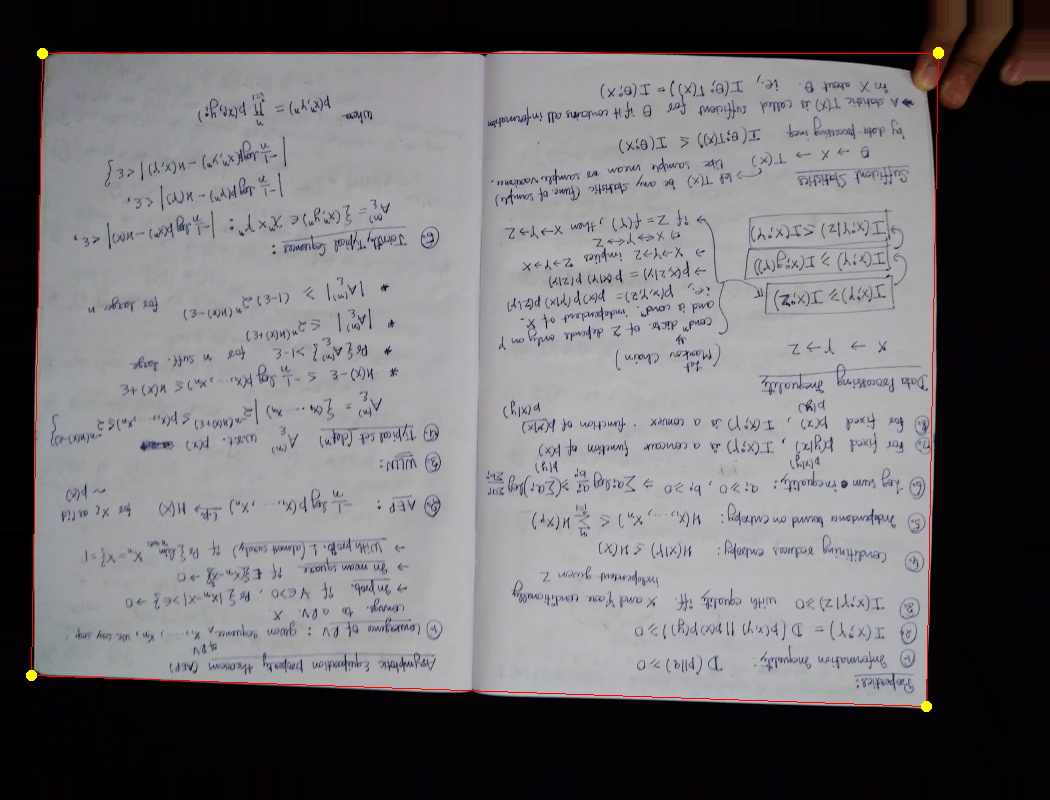 Properties:
1. Information Inequality: D(p||q) ≥ 0
2. I(X;Y) = D(p(x,y) || p(x)p(y)) ≥ 0
3. I(X;Y|Z) ≥ 0 with equality iff X and Y are conditionally independent given Z
4. Conditioning reduces entropy: H(X|Y) ≤ H(X)
5. Independence bound on entropy: H(X₁, ..., Xₙ) ≤ Σᵢ₌₁ⁿ H(Xᵢ)
6. Log sum inequality: aᵢ ≥ 0, bᵢ ≥ 0 ⇒ Σaᵢ log aᵢ/bᵢ ≥ (Σaᵢ) log Σaᵢ/Σbᵢ
7. For fixed p(y|x), I(X;Y) is a concave function of p(x)
8. For fixed p(x), I(X;Y) is a convex function of p(y|x)
Data Processing Inequality
X → Y → Z
(1st order Markov Chain)
condⁿ distⁿ of Z depends only on Y
and is condⁿ independent of X.
i.e., p(x,y,z) = p(x) p(y|x) p(z|y)
→ p(x,z|y) = p(x|y) p(z|y)
→ X→Y→Z implies Z→Y→X
⇒ X↔Y↔Z
→ if Z = f(Y), then X→Y→Z
I(X;Y) ≥ I(X;Z)
I(X;Y) ≥ I(X;g(Y))
I(X;Y|Z) ≤ I(X;Y)
Sufficient Statistics
let T(X) be any statistic (func of sample)
θ → X → T(X) like sample mean or sample variance.
by data-processing ineq. I(θ;T(X)) ≤ I(θ;X)
→ A statistic T(X) is called sufficient for θ if it contains all information
in X about θ. i.e., I(θ;T(X)) = I(θ;X)
Asymptotic Equipartition property theorem (AEP)
1. Convergence of RV: given sequence of RV X₁, ..., Xₙ, we say seq
convg. to a RV X.
→ In prob. if ∀ ε>0, Pr{|Xₙ-X|>ε} → 0
→ In mean square if E{(Xₙ-X)²} → 0
→ With prob. 1 (almost surely) if Pr{lim n→∞ Xₙ=X}=1
2. AEP: -1/n log p(X₁, ..., Xₙ) i.p.→ H(X) for Xᵢ as iid ~ p(x)
3. WLLN:
4. Typical set (defn) A_ε⁽ⁿ⁾ w.r.t. p(x)
A_ε⁽ⁿ⁾ = {(x₁, ..., xₙ) | 2^-n(H(X)+ε) ≤ p(x₁, ..., xₙ) ≤ 2^-n(H(X)-ε)}
* H(X)-ε ≤ -1/n log p(x₁, ..., xₙ) ≤ H(X)+ε
* Pr{A_ε⁽ⁿ⁾} > 1-ε for n suff. large
* |A_ε⁽ⁿ⁾| ≤ 2^n(H(X)+ε)
* |A_ε⁽ⁿ⁾| ≥ (1-ε) 2^n(H(X)-ε) for larger n
5. Jointly Typical Sequences:
A_ε⁽ⁿ⁾ = {(xⁿ,yⁿ) ∈ 𝒳ⁿ×𝒴ⁿ: |-1/n log p(xⁿ) - H(X)| < ε,
|-1/n log p(yⁿ) - H(Y)| < ε,
|-1/n log p(xⁿ,yⁿ) - H(X,Y)| < ε}
where p(xⁿ,yⁿ) = Πᵢ₌₁ⁿ p(xᵢ,yᵢ)